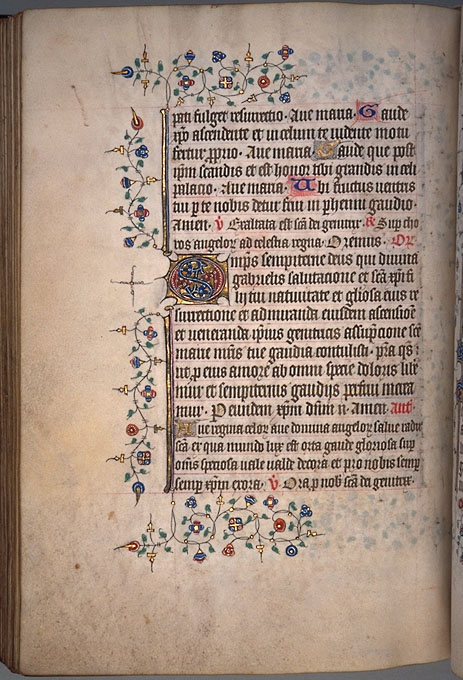 pati fulget resurrectio. Aue maria. Gaude
xp̄o ascendente et in celum te vidente motu
fertur p̄prio. Aue maria. Gaude que post
ip̄m scandis et est honor tibi grandis in celi
palacio. Aue maria. Vbi fructus ventris
tui per te nobis detur frui in perhenni gaudio.
Amen. V Exaltata est sc̄a dei genitrix. R Sup cho
ros angelor̄ ad celestia regna. Oremus. Or̄
Om̄ps sempiterne deus qui diuina
gabrielis salutacione et sc̄a xp̄i fi
lij tui natiuitate et gl̄iosa eius re
surrectione et admiranda eiusdem ascensiōe
et veneranda ip̄ius genitricis assūpcione sc̄e
marie mr̄is tue gaudia contulisti. pr̄a qs̄
vt p eius amore ab omni specie doloris libe
mur et sempiternis gaudijs perfrui merea
mur. P eundem xp̄m dn̄m n̄. Amen. Ant̄.
Aue regina celor̄ aue domina angelor̄ salue radix
sc̄a ex qua mundo lux est orta gaude gloriosa sup
om̄s speciosa vale valde decora et pro nobis semp
semp xp̄m exora. V Ora p nob̄ sc̄a dei genitrix.